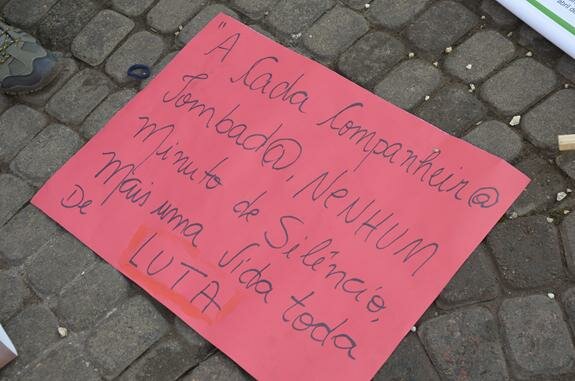 "A Cada Companheir@
Tombad@, NENHUM
Minuto de Silêncio,
Mais uma vida toda
De LUTA
abril de